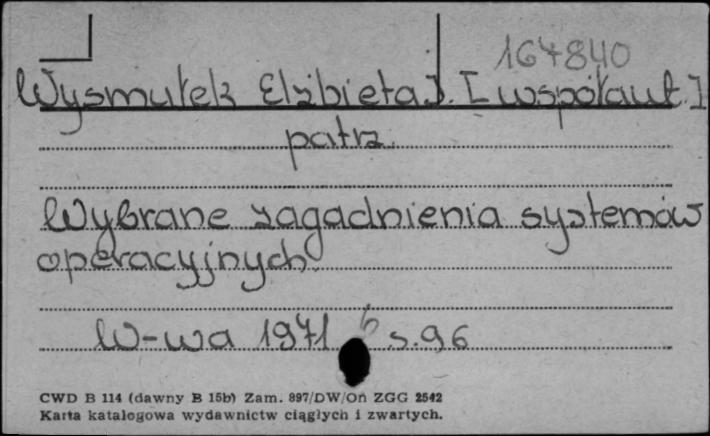 167840
Wysmułek Elżbieta J. [współaut.]
patrz
Wybrane zagadnienia systemów
operacyjnych.
W-wa 1971 s. 96
CWD B 114 (dawny B 15b) Zam. 897/DW/On ZGG 2542
Karta katalogowa wydawnictw ciągłych i zwartych.